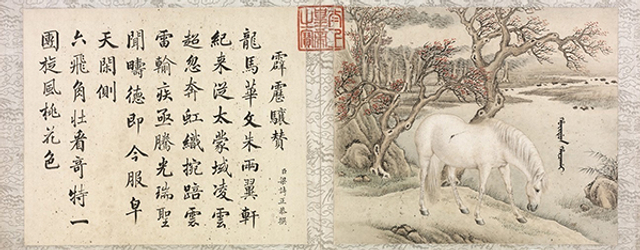 霹靂驤贊
臣梁詩正恭撰
龍馬華文朱兩翼軒
紀來從太蒙域凌雲
超忽奔虹織捥踣雲
雷輪疾亟騰光瑞聖
聞疇德即今服皁
天閑側
六飛角壯看奇特一
團旋風桃花色